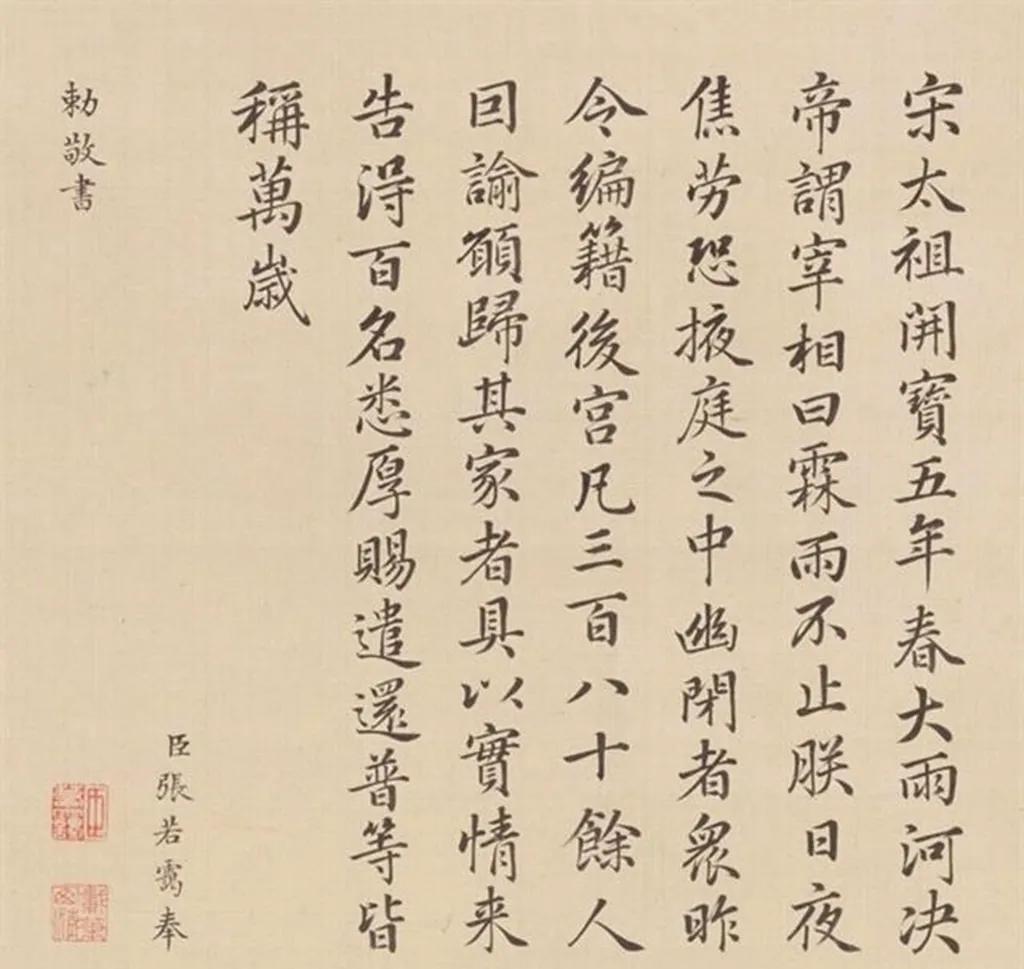 宋太祖開寶五年春大雨河决
帝謂宰相曰霖雨不止朕日夜
焦劳恐掖庭之中幽閉者眾昨
令編籍後宫凡三百八十餘人
囙諭願歸其家者具以實情来
告得百名悉厚賜遣還普等皆
稱萬歲
臣張若靄奉
勅敬書